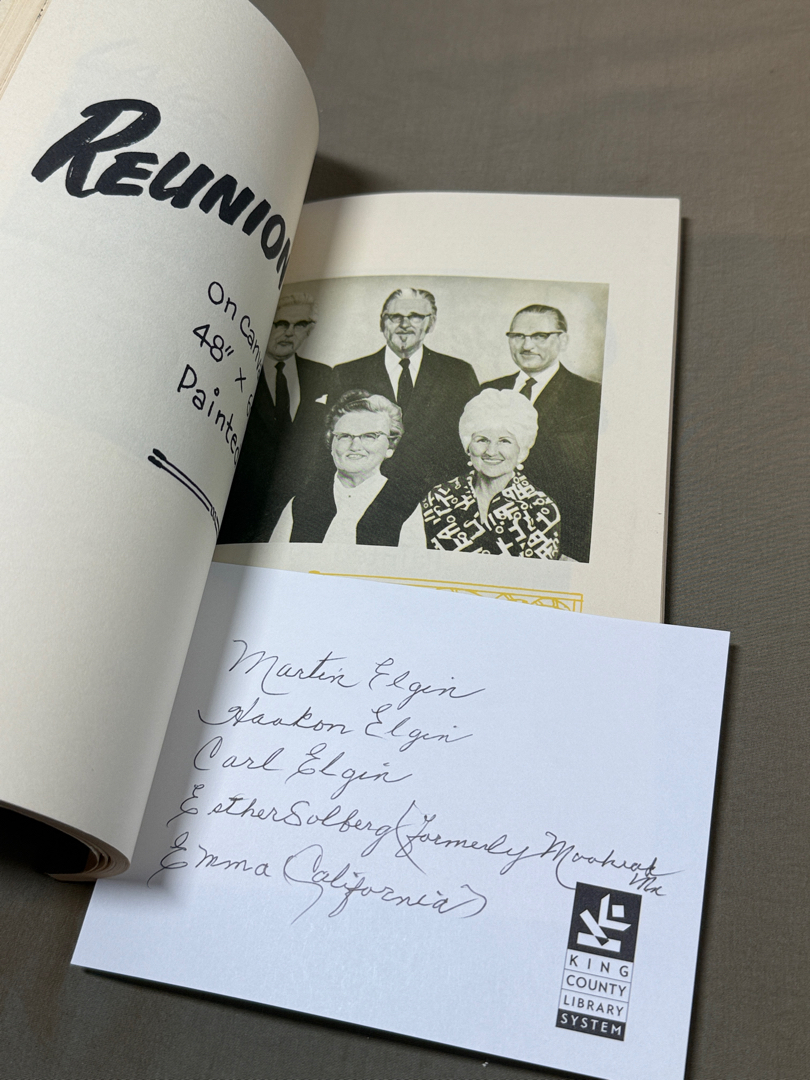 REUNION
On Can
48" x
Painted
Martin Elgin
Haakon Elgin
Carl Elgin
Esther Solberg (formerly
Mn
Emma (California)
KING
COUNTY
LIBRARY
SYSTEM